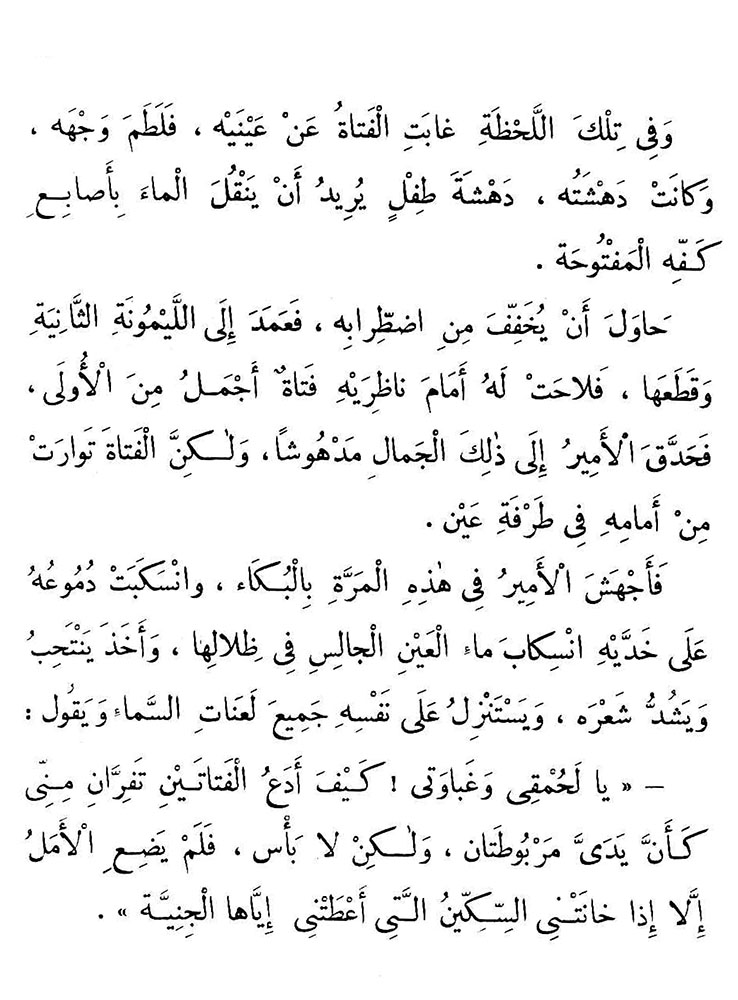 وَفِى تِلْكَ اللَّحْظَةِ غابَتِ الْفَتاةُ عَنْ عَيْنَيْه ، فَلَطَمَ وَجْهَه ،
وَكانَتْ دَهْشَتُه ، دَهْشَةَ طِفْلٍ يُرِيدُ أَنْ يَنْقُلَ الْماءَ بِأَصابِعِ
كَفِّه الْمَفْتُوحَة .
حاوَلَ أَنْ يُخَفِّفَ مِنِ اضطِّرابِه ، فَعَمَدَ إِلَى اللَّيْمُونَةِ الثَّانِيَةِ
وَقَطَعَها ، فَلاحَتْ لَهُ أَمَامَ ناظِرَيْهِ فَتاةٌ أَجْمَلُ مِنَ الْأُولَى ،
فَحَدَّقَ الْأَمِيرُ إِلَى ذٰلِكَ الْجَمالِ مَدْهُوشاً ، وَلٰكِنَّ الْفَتاةَ تَوارَتْ
مِنْ أَمامِهِ فِى طَرْفَةِ عَيْن .
فَأَجْهَشَ الْأَمِيرُ فِى هٰذِهِ الْمَرَّةِ بِالْبُكَاء ، وانْسَكَبَتْ دُمُوعُهُ
عَلَى خَدَّيْهِ انْسِكابَ ماءِ الْعَيْنِ الْجالِسِ فِى ظِلالِها ، وَأَخَذَ يَنْتَحِبُ
وَيَشُدُّ شَعْرَه ، وَيَسْتَنْزِلُ عَلَى نَفْسِهِ جَمِيعَ لَعَناتِ السَّماءِ وَيَقُول :
– « يا لَحُمْقِى وَغَباوَتى ! كَيْفَ أَدَعُ الْفَتاتَيْنِ تَفِرَّانِ مِنِّى
كَأَنَّ يَدَىَّ مَرْبُوطَتَان ، وَلٰكِنْ لا بَأْس ، فَلَمْ يَضِعِ الْأَمَلُ
إِلَّا إِذا خانَتْنِى السِّكِّينُ الَّتِى أَعْطَتْنِى إِيَّاها الْجِنِيَّة » .